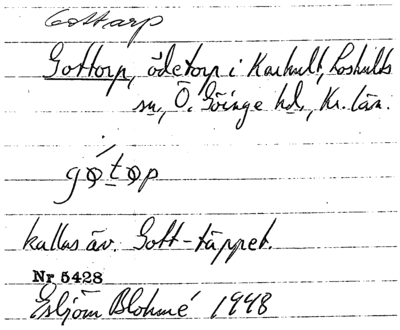 Gottarp
Gottorp, ödetorp i Karhult, Loshults
sn, Ö. Göinge hd., Kr. län.
kallas äv. Gott-täppet.
Nr 5428
Esbjörn Blohmé 1948